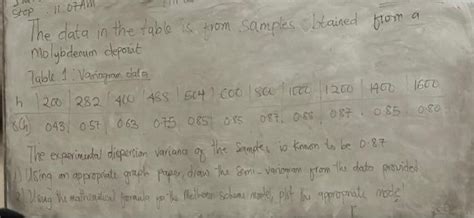 Step 11:07AM
The data in the table is from samples obtained from a
molybdenum deposit
Table 1: Variogram data
h | 200 | 282 | 400 | 488 | 564 | 600 | 800 | 1000 | 1200 | 1400 | 1600
γ(h) 0.43 0.57 0.63 0.75 0.85 0.85 0.87 0.88 0.87 0.85 0.80
The experimental dispersion variance of the samples is known to be 0.87
1) Using an appropriate graph paper, draw the semi-variogram from the data provided
2) Using the mathematical formula for the Matheron scheme model, plot the appropriate model